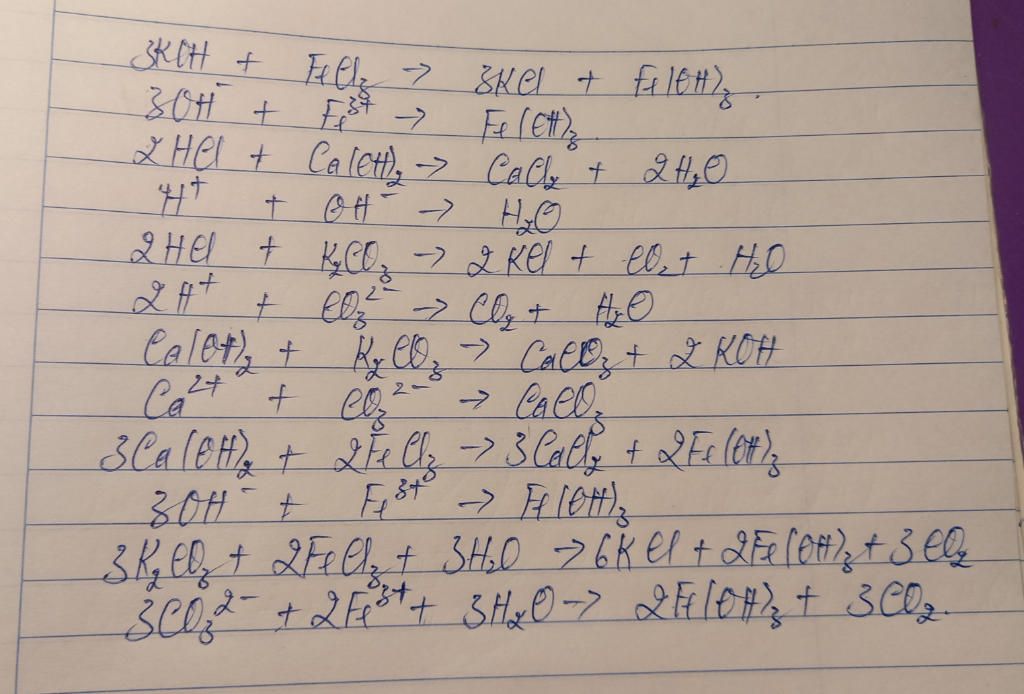 3KOH + FeCl₃ → 3KCl + Fe(OH)₃.
3OH⁻ + Fe³⁺ → Fe(OH)₃.
2HCl + Ca(OH)₂ → CaCl₂ + 2H₂O
H⁺ + OH⁻ → H₂O
2HCl + K₂CO₃ → 2KCl + CO₂ + H₂O
2H⁺ + CO₃²⁻ → CO₂ + H₂O
Ca(OH)₂ + K₂CO₃ → CaCO₃ + 2KOH
Ca²⁺ + CO₃²⁻ → CaCO₃
3Ca(OH)₂ + 2FeCl₃ → 3CaCl₂ + 2Fe(OH)₃
3OH⁻ + Fe³⁺ → Fe(OH)₃
3K₂CO₃ + 2FeCl₃ + 3H₂O → 6KCl + 2Fe(OH)₃ + 3CO₂
3CO₃²⁻ + 2Fe³⁺ + 3H₂O → 2Fe(OH)₃ + 3CO₂.